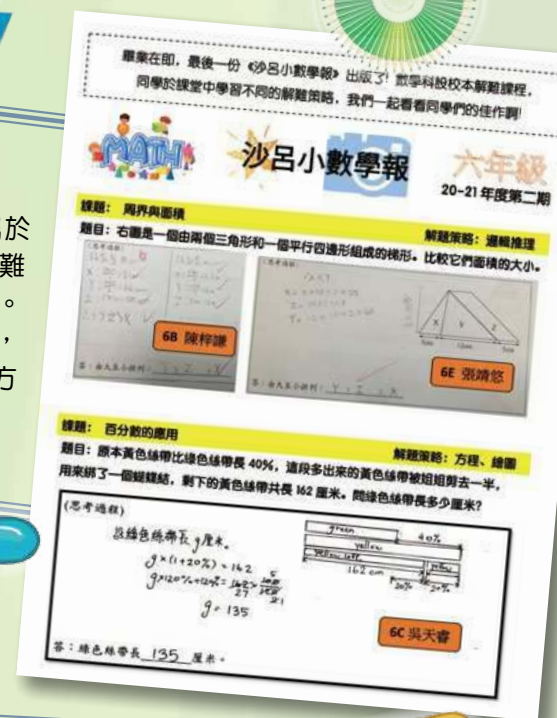 畢業在即，最後一份《沙呂小數學報》出版了! 數學科設校本解難課程，
同學於課堂中學習不同的解難策略，我們一起看看同學們的佳作啊!
MATH
沙呂小數學報
六年級
20-21 年度第二期
課題： 周界與面積
解題策略：邏輯推理
題目：右圖是一個由兩個三角形和一個平行四邊形組成的梯形。比較它們面積的大小。
(思考過程)
6B 陳梓謙
答：由大至小排列：Y, Z, X
X
Y
Z
6E 張靖悠
答：由大至小排列：Y, Z, X
課題： 百分數的應用
解題策略：方程、繪圖
題目：原本黃色絲帶比綠色絲帶長 40%，這段多出來的黃色絲帶被姐姐剪去一半，
用來綁了一個蝴蝶結，剩下的黃色絲帶共長 162 厘米。問綠色絲帶長多少厘米?
(思考過程)
設綠色絲帶長 y 厘米。
y×(1+20%) = 162
y = 135
green
40%
yellow
yellow left
162 cm
20%
20%
6C 吳天睿
答：綠色絲帶長 135 厘米。
於
難
。
，
方